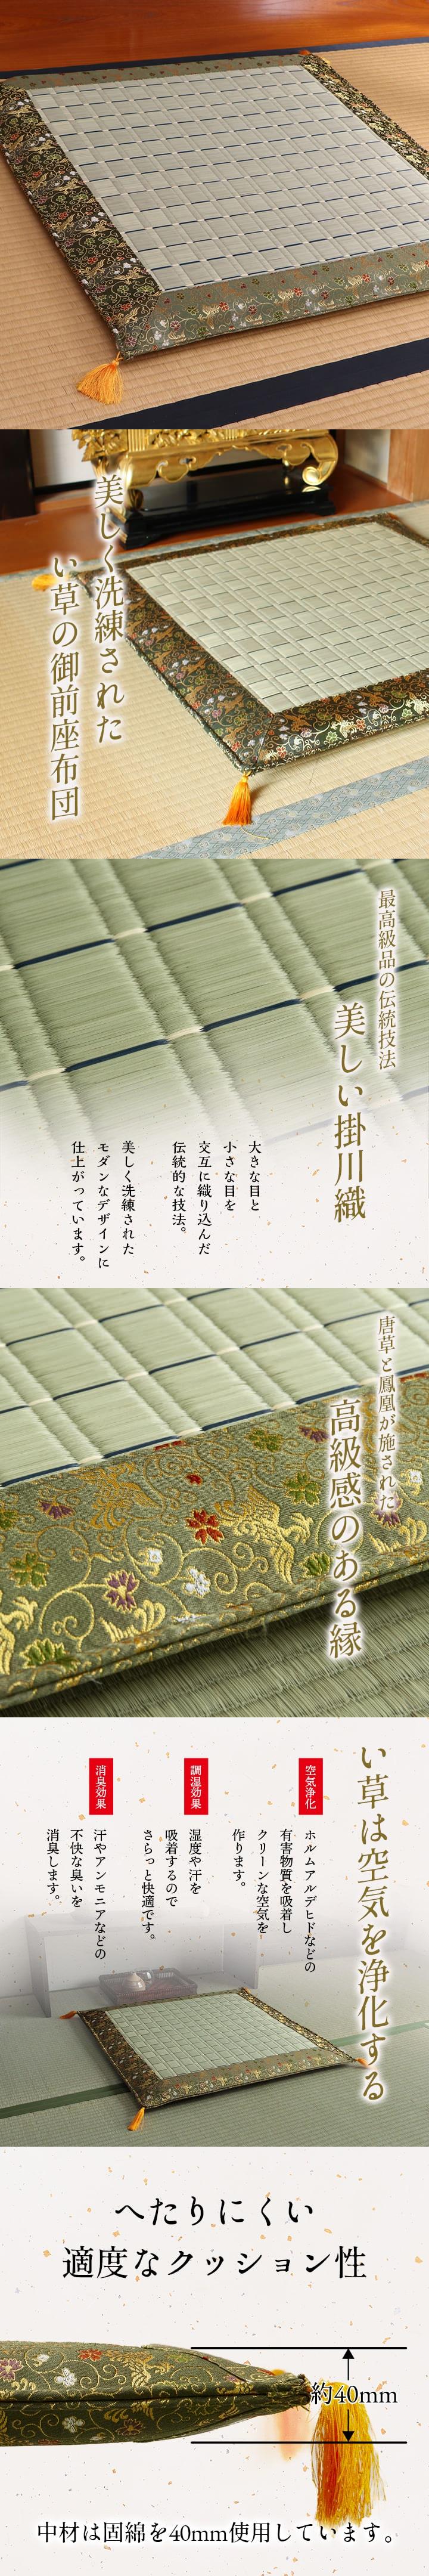 美しく洗練された
い草の御前座布団
最高級品の伝統技法
美しい掛川織
大きな目と
小さな目を
交互に織り込んだ
伝統的な技法。
美しく洗練された
モダンなデザインに
仕上がっています。
唐草と鳳凰が施された
高級感のある縁
い草は空気を浄化する
空気浄化
ホルムアルデヒドなどの
有害物質を吸着し
クリーンな空気を
作ります。
調湿効果
湿度や汗を
吸着するので
さらっと快適です。
消臭効果
汗やアンモニアなどの
不快な臭いを
消臭します。
へたりにくい
適度なクッション性
約40mm
中材は固綿を40mm使用しています。